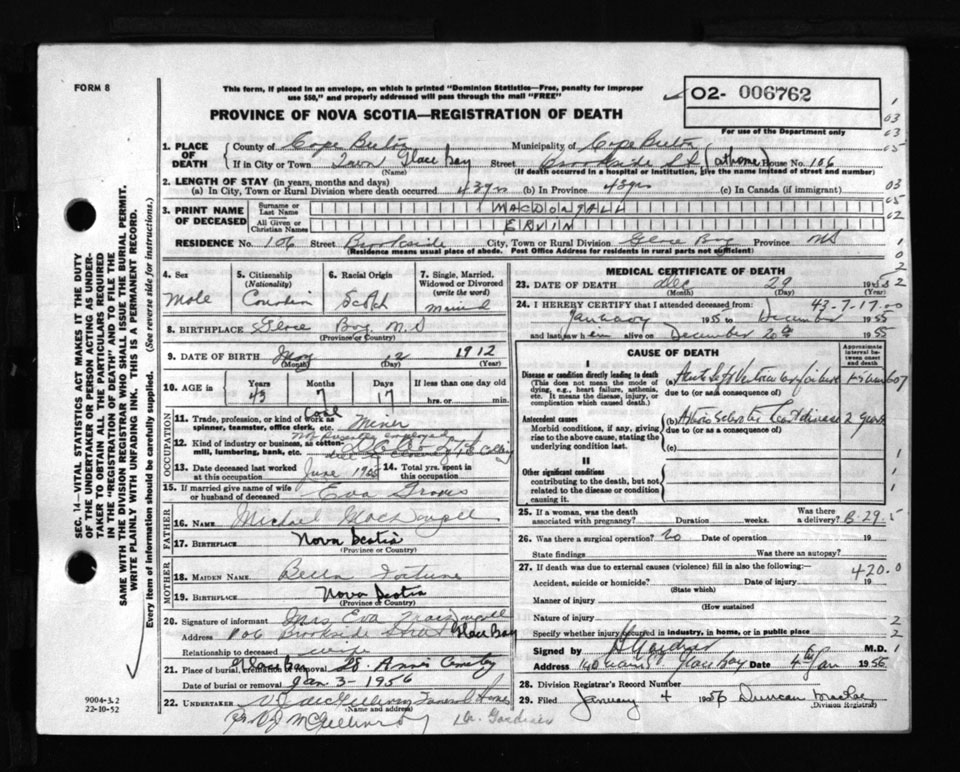 FORM 8
This form, if placed in an envelope, on which is printed "Dominion Statistics—Free, penalty for improper
use $50," and properly addressed will pass through the mail "FREE"
O2- 006762
PROVINCE OF NOVA SCOTIA—REGISTRATION OF DEATH
For use of the Department only
1. PLACE OF DEATH
County of Cape Breton Municipality of Cape Breton
If in City or Town Town Glace Bay Street Brookside St. (at home) House No. 106
(Name) (If death occurred in a hospital or institution, give the name instead of street and number)
2. LENGTH OF STAY (in years, months and days)
(a) In City, Town or Rural Division where death occurred 43 yrs (b) In Province 43 yrs (c) In Canada (if immigrant)
3. PRINT NAME OF DECEASED
Surname or Last Name MACDOUGALL
All Given or Christian Names ERVIN
RESIDENCE No. 106 Street Brookside City, Town or Rural Division Glace Bay Province NS
(Residence means usual place of abode. Post Office Address for residents in rural parts not sufficient)
4. Sex
Male
5. Citizenship
(Nationality)
Canadian
6. Racial Origin
Scotch
7. Single, Married, Widowed or Divorced
(write the word)
Married
8. BIRTHPLACE Glace Bay N.S
(Province or Country)
9. DATE OF BIRTH May 12 1912
(Month) (Year)
10. AGE in Years Months Days If less than one day old
43 7 17 hrs. or min.
OCCUPATION
11. Trade, profession, or kind of work as spinner, teamster, office clerk, etc. Coal Miner
12. Kind of industry or business, as cotton-mill, lumbering, bank, etc. Not presently employed
13. Date deceased last worked at this occupation June 1955
14. Total yrs. spent in this occupation
15. If married give name of wife or husband of deceased Eva
FATHER
16. NAME Michael MacDougall
17. BIRTHPLACE Nova Scotia
(Province or Country)
MOTHER
18. MAIDEN NAME Bella Fortune
19. BIRTHPLACE Nova Scotia
(Province or Country)
20. Signature of informant Mrs Eva MacDougall
Address 106 Brookside Street Glace Bay
Relationship to deceased wife
21. Place of burial, cremation or removal Glace Bay St. Anns Cemetery
Date of burial or removal Jan. 3 - 1956
22. UNDERTAKER V J McGillivray Funeral Home
(Name and address)
Per V J McGillivray
Dr. Gardiner
MEDICAL CERTIFICATE OF DEATH
23. DATE OF DEATH Dec 29 1955
(Month) (Day) (Year)
43-7-17-00
24. I HEREBY CERTIFY that I attended deceased from:
January 1955 to December 1955
and last saw him alive on December 26th 1955
CAUSE OF DEATH
Approximate interval between onset and death
I
Disease or condition directly leading to death
(This does not mean the mode of dying, e.g., heart failure, asthenia, etc. It means the disease, injury, or complication which caused death.)
(a) Acute Left Ventricular failure
due to (or as a consequence of)
Antecedent causes
Morbid conditions, if any, giving rise to the above cause, stating the underlying condition last.
(b) Arterio Sclerotic Heart disease 2 years
due to (or as a consequence of)
(c)
II
Other significant conditions
contributing to the death, but not related to the disease or condition causing it.
25. If a woman, was the death associated with pregnancy? Duration weeks. Was there a delivery? B-29-5
26. Was there a surgical operation? No Date of operation 19
State findings Was there an autopsy?
27. If death was due to external causes (violence) fill in also the following:—
420.0
Accident, suicide or homicide? Date of injury 19
(State which)
Manner of injury
(How sustained
Nature of injury
Specify whether injury occurred in industry, in home, or in public place
Signed by H Gardiner M.D.
Address Glace Bay Date 4th Jan 1956
28. Division Registrar's Record Number
29. Filed January 4 1956 Duncan MacRae
(Division Registrar)
SEC. 14—VITAL STATISTICS ACT MAKES IT THE DUTY
OF THE UNDERTAKER OR PERSON ACTING AS UNDER-
TAKER TO OBTAIN ALL THE PARTICULARS REQUIRED
IN THE "REGISTRATION OF DEATH" AND TO FILE THE
SAME WITH THE DIVISION REGISTRAR WHO SHALL ISSUE THE BURIAL PERMIT.
WRITE PLAINLY WITH UNFADING INK. THIS IS A PERMANENT RECORD.
Every item of information should be carefully supplied. (See reverse side for instructions.)
9004-3.2
22-10-52